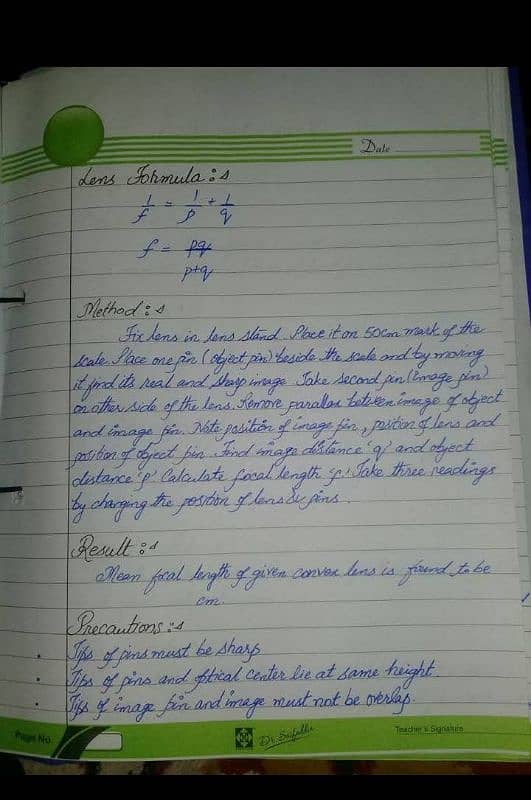 Date
Lens Formula :s
1/f = 1/p + 1/q
f = pq/p+q
Method :s
Fix lens in lens stand. Place it on 50cm mark of the
scale. Place one pin (object pin) beside the scale and by moving
it find its real and sharp image. Take second pin (image pin)
on other side of the lens. Remove parallax between image of object
and image pin. Note position of image pin, position of lens and
position of object pin. Find image distance 'q' and object
distance 'p'. Calculate focal length 'f'. Take three readings
by changing the position of lens & pins.
Result :s
Mean focal length of given convex lens is found to be
cm.
Precautions :s
Tips of pins must be sharp
Tips of pins and optical center lie at same height.
Tips of image pin and image must not be overlap.
Page No.
Teacher's Signature